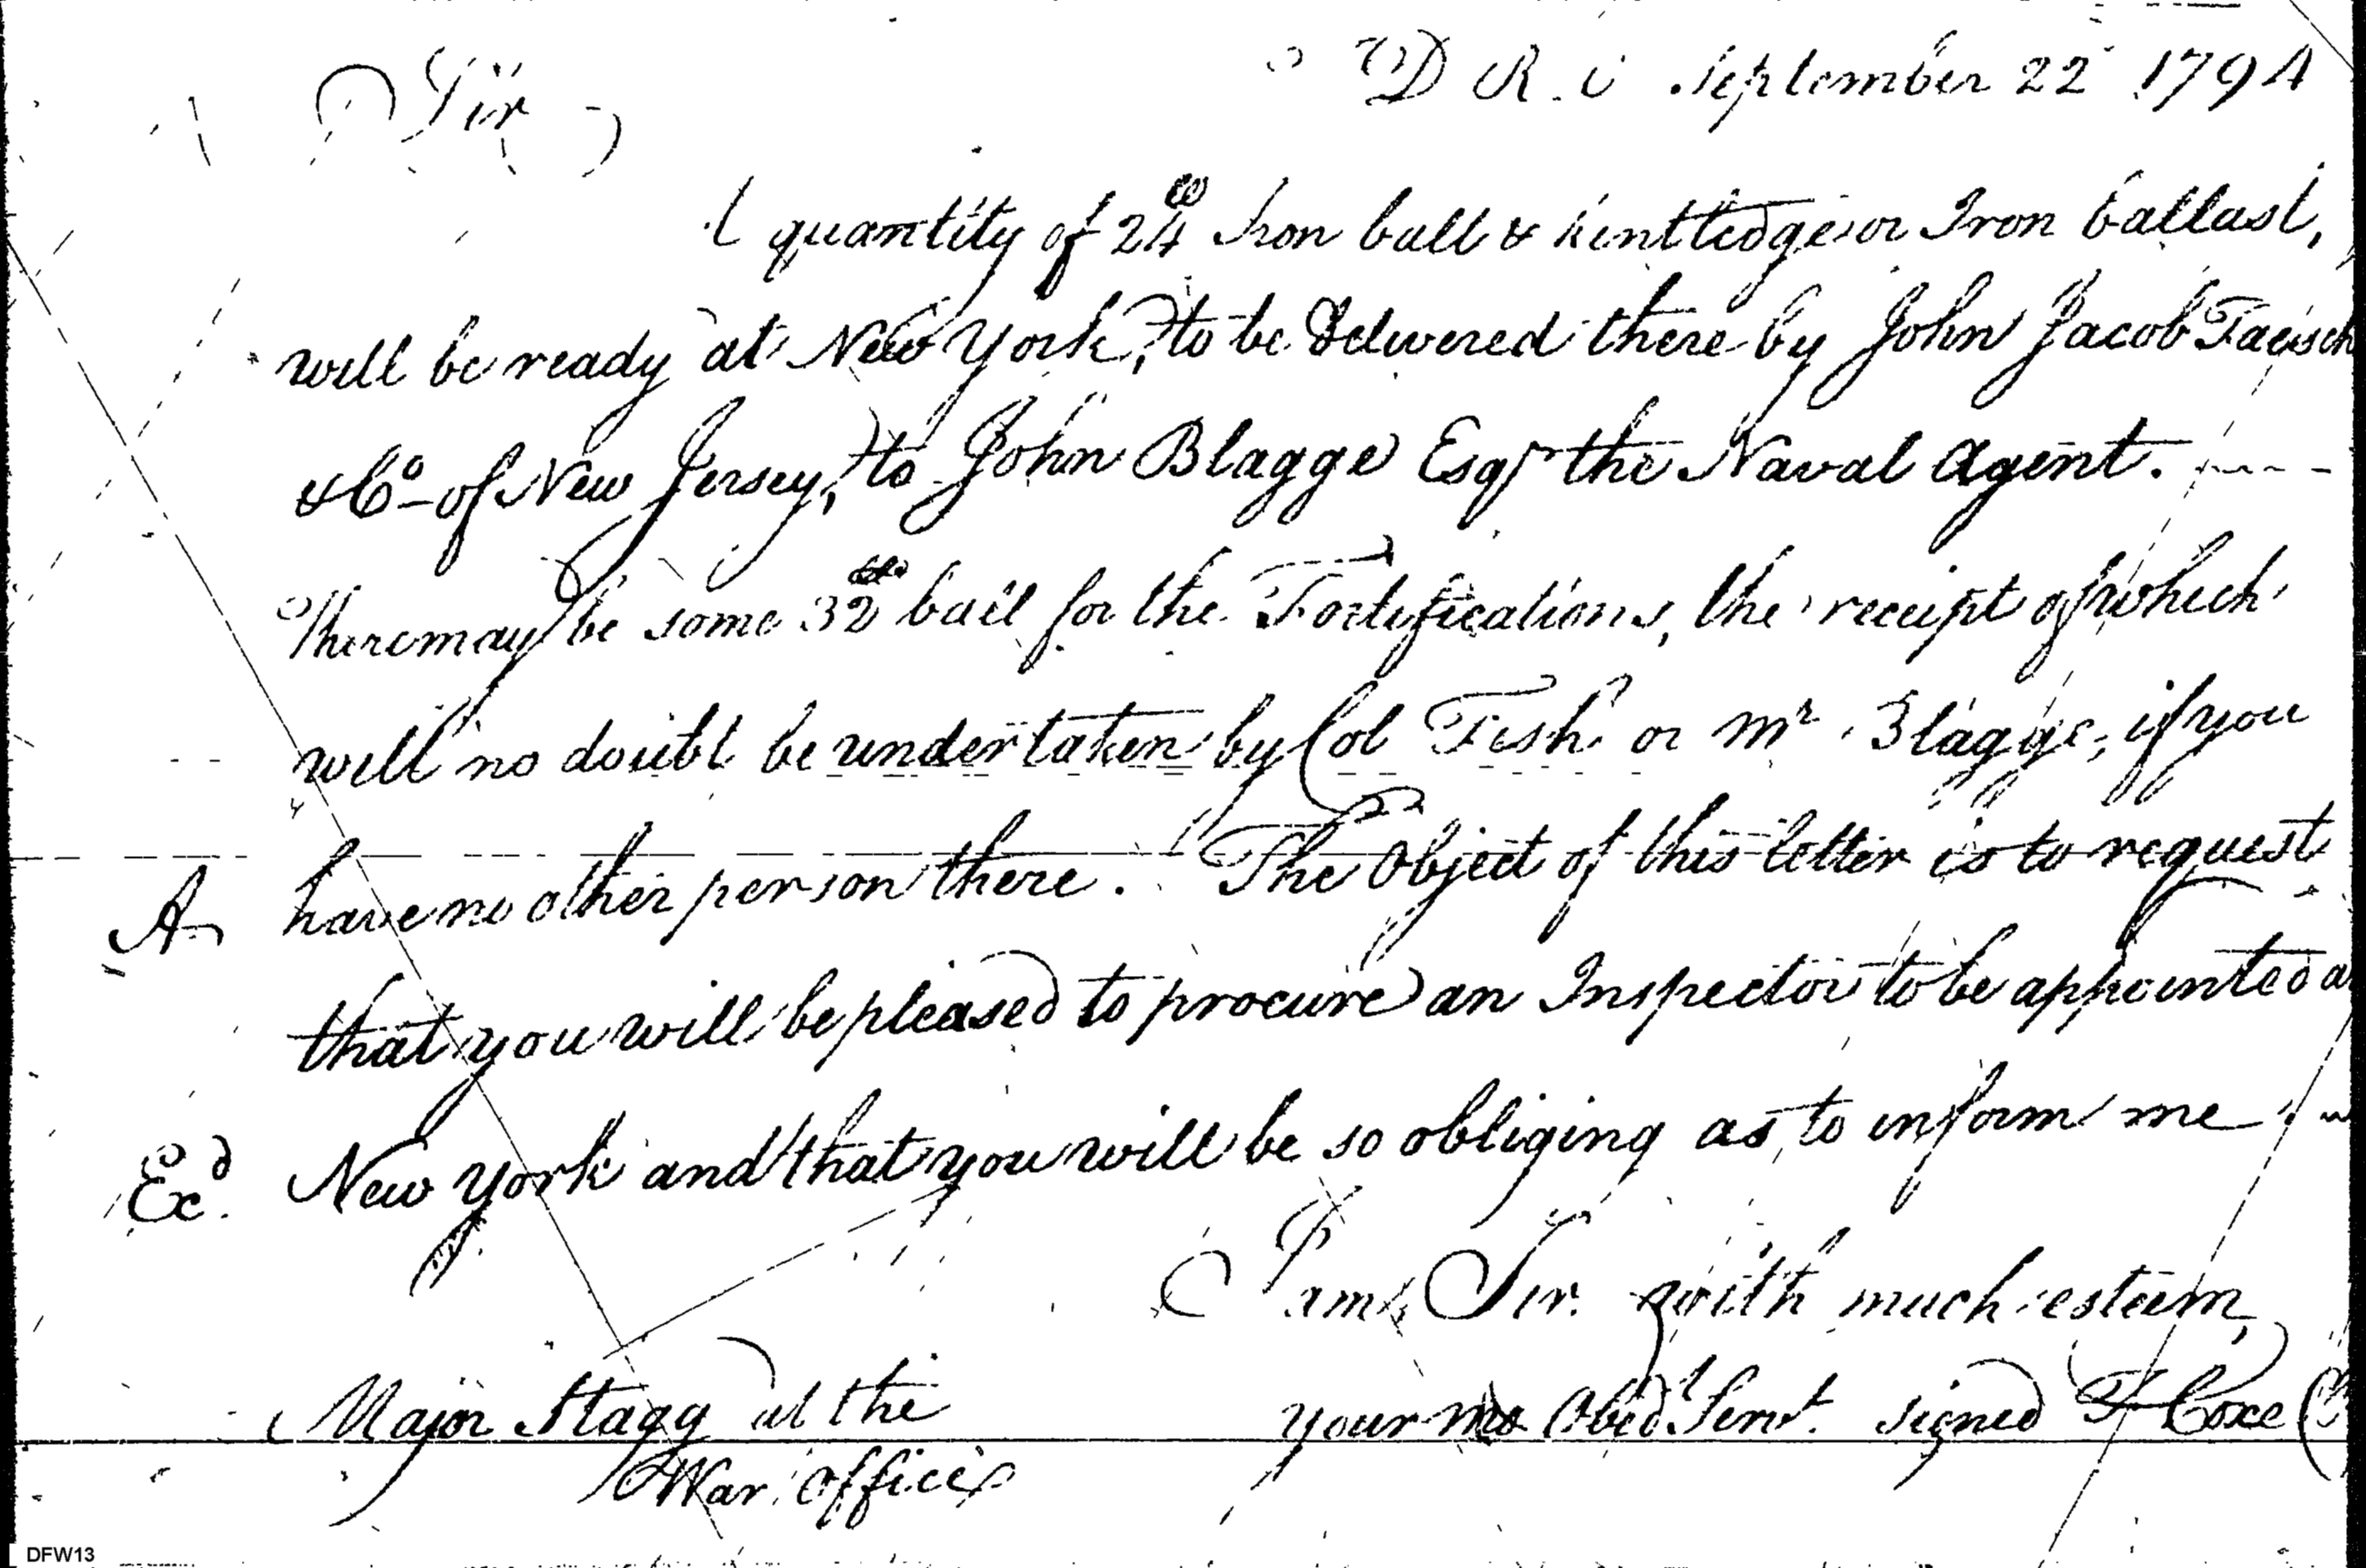 T D R. O September 22 1794
Sir
A quantity of 24 lb Iron ball & kintledge or Iron ballast,
will be ready at New York, to be delivered there by John Jacob Faesch
& Co of New Jersey, to John Blagge Esqr the Naval Agent.
There may be some 32 lb ball for the Fortifications, the receipt of which
will no doubt be undertaken by Col Fish or Mr Blagge, if you
A have no other person there. The Object of this letter is to request
that you will be pleased to procure an Inspector to be appointed a
Exd. New York and that you will be so obliging as to inform me
I am Sir. with much esteem,
Major Stagg at the your mo Obedt Servt. signed T Coxe
War Office
DFW13